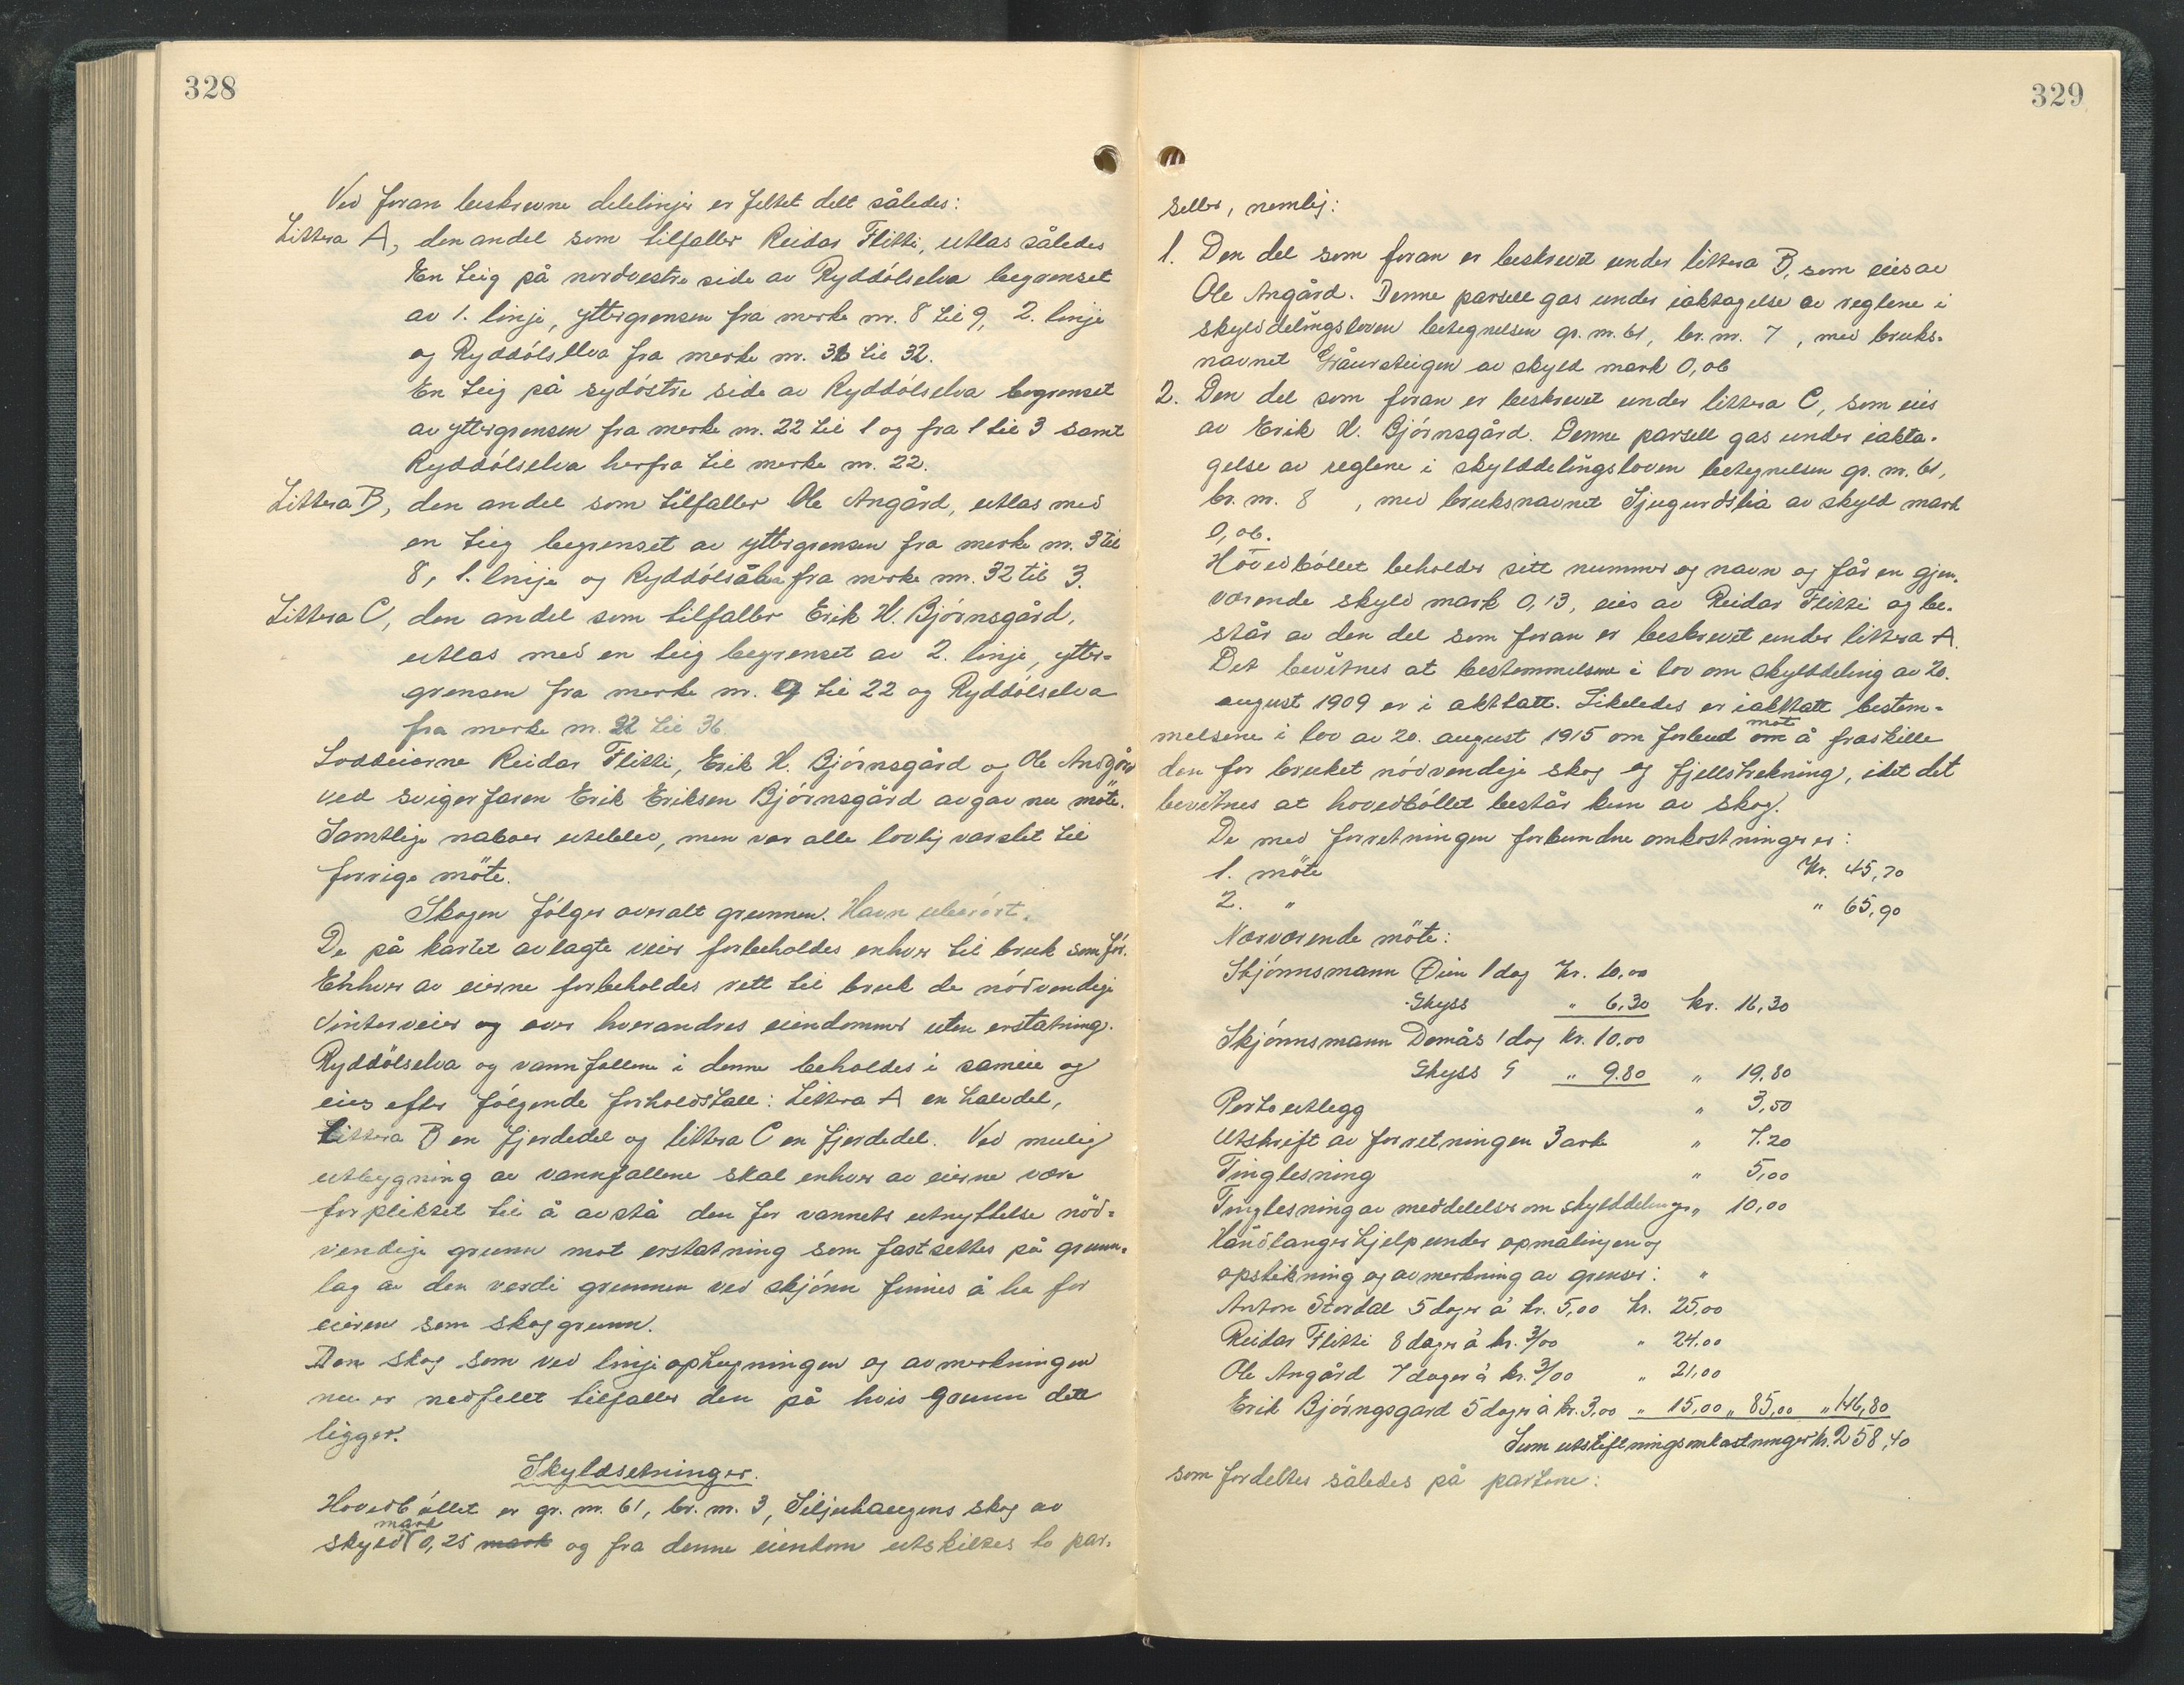 328
Ved foran beskrevne delelinjer er feltet delt således:
Littera A, den andel som tilfaller Reidar Flitti, utlas således
En teig på nordvestre side av Ryddölselva begrenset
av 1. linje, yttergrensen fra merke nr. 8 til 9, 2. linje
og Ryddölselva fra merke nr. 36 til 32.
En teig på sydöstre side av Ryddölselva begrenset
av yttergrensen fra merke nr. 22 til 1 og fra 1 til 3 samt
Ryddölselva herfra til merke nr. 22.
Littera B, den andel som tilfaller Ole Angård, utlas med
en teig begrenset av yttergrensen fra merke nr. 3 til
8, 1. linje og Ryddölsåen fra merke nr. 32 til 3.
Littera C, den andel som tilfaller Erik H. Björnsgård,
utlas med en teig begrenset av 2. linje, ytter-
grensen fra merke nr. 9 til 22 og Ryddölselva
fra merke nr. 22 til 36.
Loddeierne Reidar Flitti, Erik H. Björnsgård og Ole Angård
ved svigerfaren Erik Eriksen Björnsgård avgav nu möte.
Samtlige naboer uteblev, men var alle lovlig varslet til
forrige möte.
Skogen fölger overalt grunnen. Havn uberört.
De på kartet avlagte veier forbeholdes enhver til bruk som för.
Enhver av eierne forbeholdes rett til bruk de nödvendige
vinterveier og over hverandres eiendommer uten erstatning.
Ryddölselva og vannfallene i denne beholdes i sameie og
eies efter fölgende forholdstall: Littera A en halvdel,
Littera B en fjerdedel og littera C en fjerdedel. Ved mulig
utbygning av vannfallene skal enhver av eierne være
forpliktet til å avstå den for vannets utnyttelse nöd-
vendige grunn mot erstatning som fastsettes på grunn-
lag av den verdi grunnen ved skjönn finnes å ha for
eieren som skoggrunn.
Den skog som ved linjeophugningen og avmerkningen
nu er nedfellt tilfaller den på hvis grunn dette
ligger.
Skyldsetninger.
Hovedböllet er gr. nr. 61, br. nr. 3, Siljuhaugens skog av
mark
skyld 0,25 mark og fra denne eiendom utskiltes to par-
329
seller, nemlig:
1. Den del som foran er beskrevet under littera B, som eies av
Ole Angård. Denne parsell gas under iaktagelse av reglene i
skylddelingsloven betegnelsen gr. nr. 61, br. nr. 7, med bruks-
navnet Gråursteigen av skyld mark 0,06
2. Den del som foran er beskrevet under littera C, som eies
av Erik H. Björnsgård. Denne parsell gas under iakta-
gelse av reglene i skylddelingsloven betegnelsen gr. nr. 61,
br. nr. 8, med bruksnavnet Sjugurdslia av skyld mark
0,06.
Hovedböllet beholder sitt nummer og navn og får en gjen-
værende skyld mark 0,13, eies av Reidar Flitti og be-
står av den del som foran er beskrevet under littera A.
Det bevitnes at bestemmelsene i lov om skylddeling av 20.
august 1909 er i akttatt. Likeledes er iakttatt bestem-
mot
melsene i lov av 20. august 1915 om forbud om å fraskille
den for bruket nödvendige skog og fjellstrekning, idet det
bevitnes at hovedböllet består kun av skog.
De med forretningen forbundne omkostninger er:
1. möte Kr. 45,70
2. " " 65,90
Nærværende möte:
Skjönnsmann Öien 1 dag Kr. 10.00
Skyss " 6,30 kr. 16,30
Skjönnsmann Domås 1 dag kr. 10.00
Skyss " 9.80 " 19.80
Porto utlegg " 3,50
Utskrift av forretningen 3 ark " 7.20
Tinglesning " 5,00
Tinglesning av meddelelser om skylddelinger " 10,00
Håndlangerhjelp under opmålingen og
opstikning og avmerkning av grenser: "
Anton Stordal 5 dager à kr. 5,00 kr. 25,00
Reidar Flitti 8 dager à kr. 3/00 " 24,00
Ole Angård 7 dager à kr. 3/00 " 21,00
Erik Björngsgard 5 dager à kr. 3,00 " 15,00 " 85,00 " 146,80
Sum utskiftningsomkostninger kr. 258,40
som fordeltes således på partene: